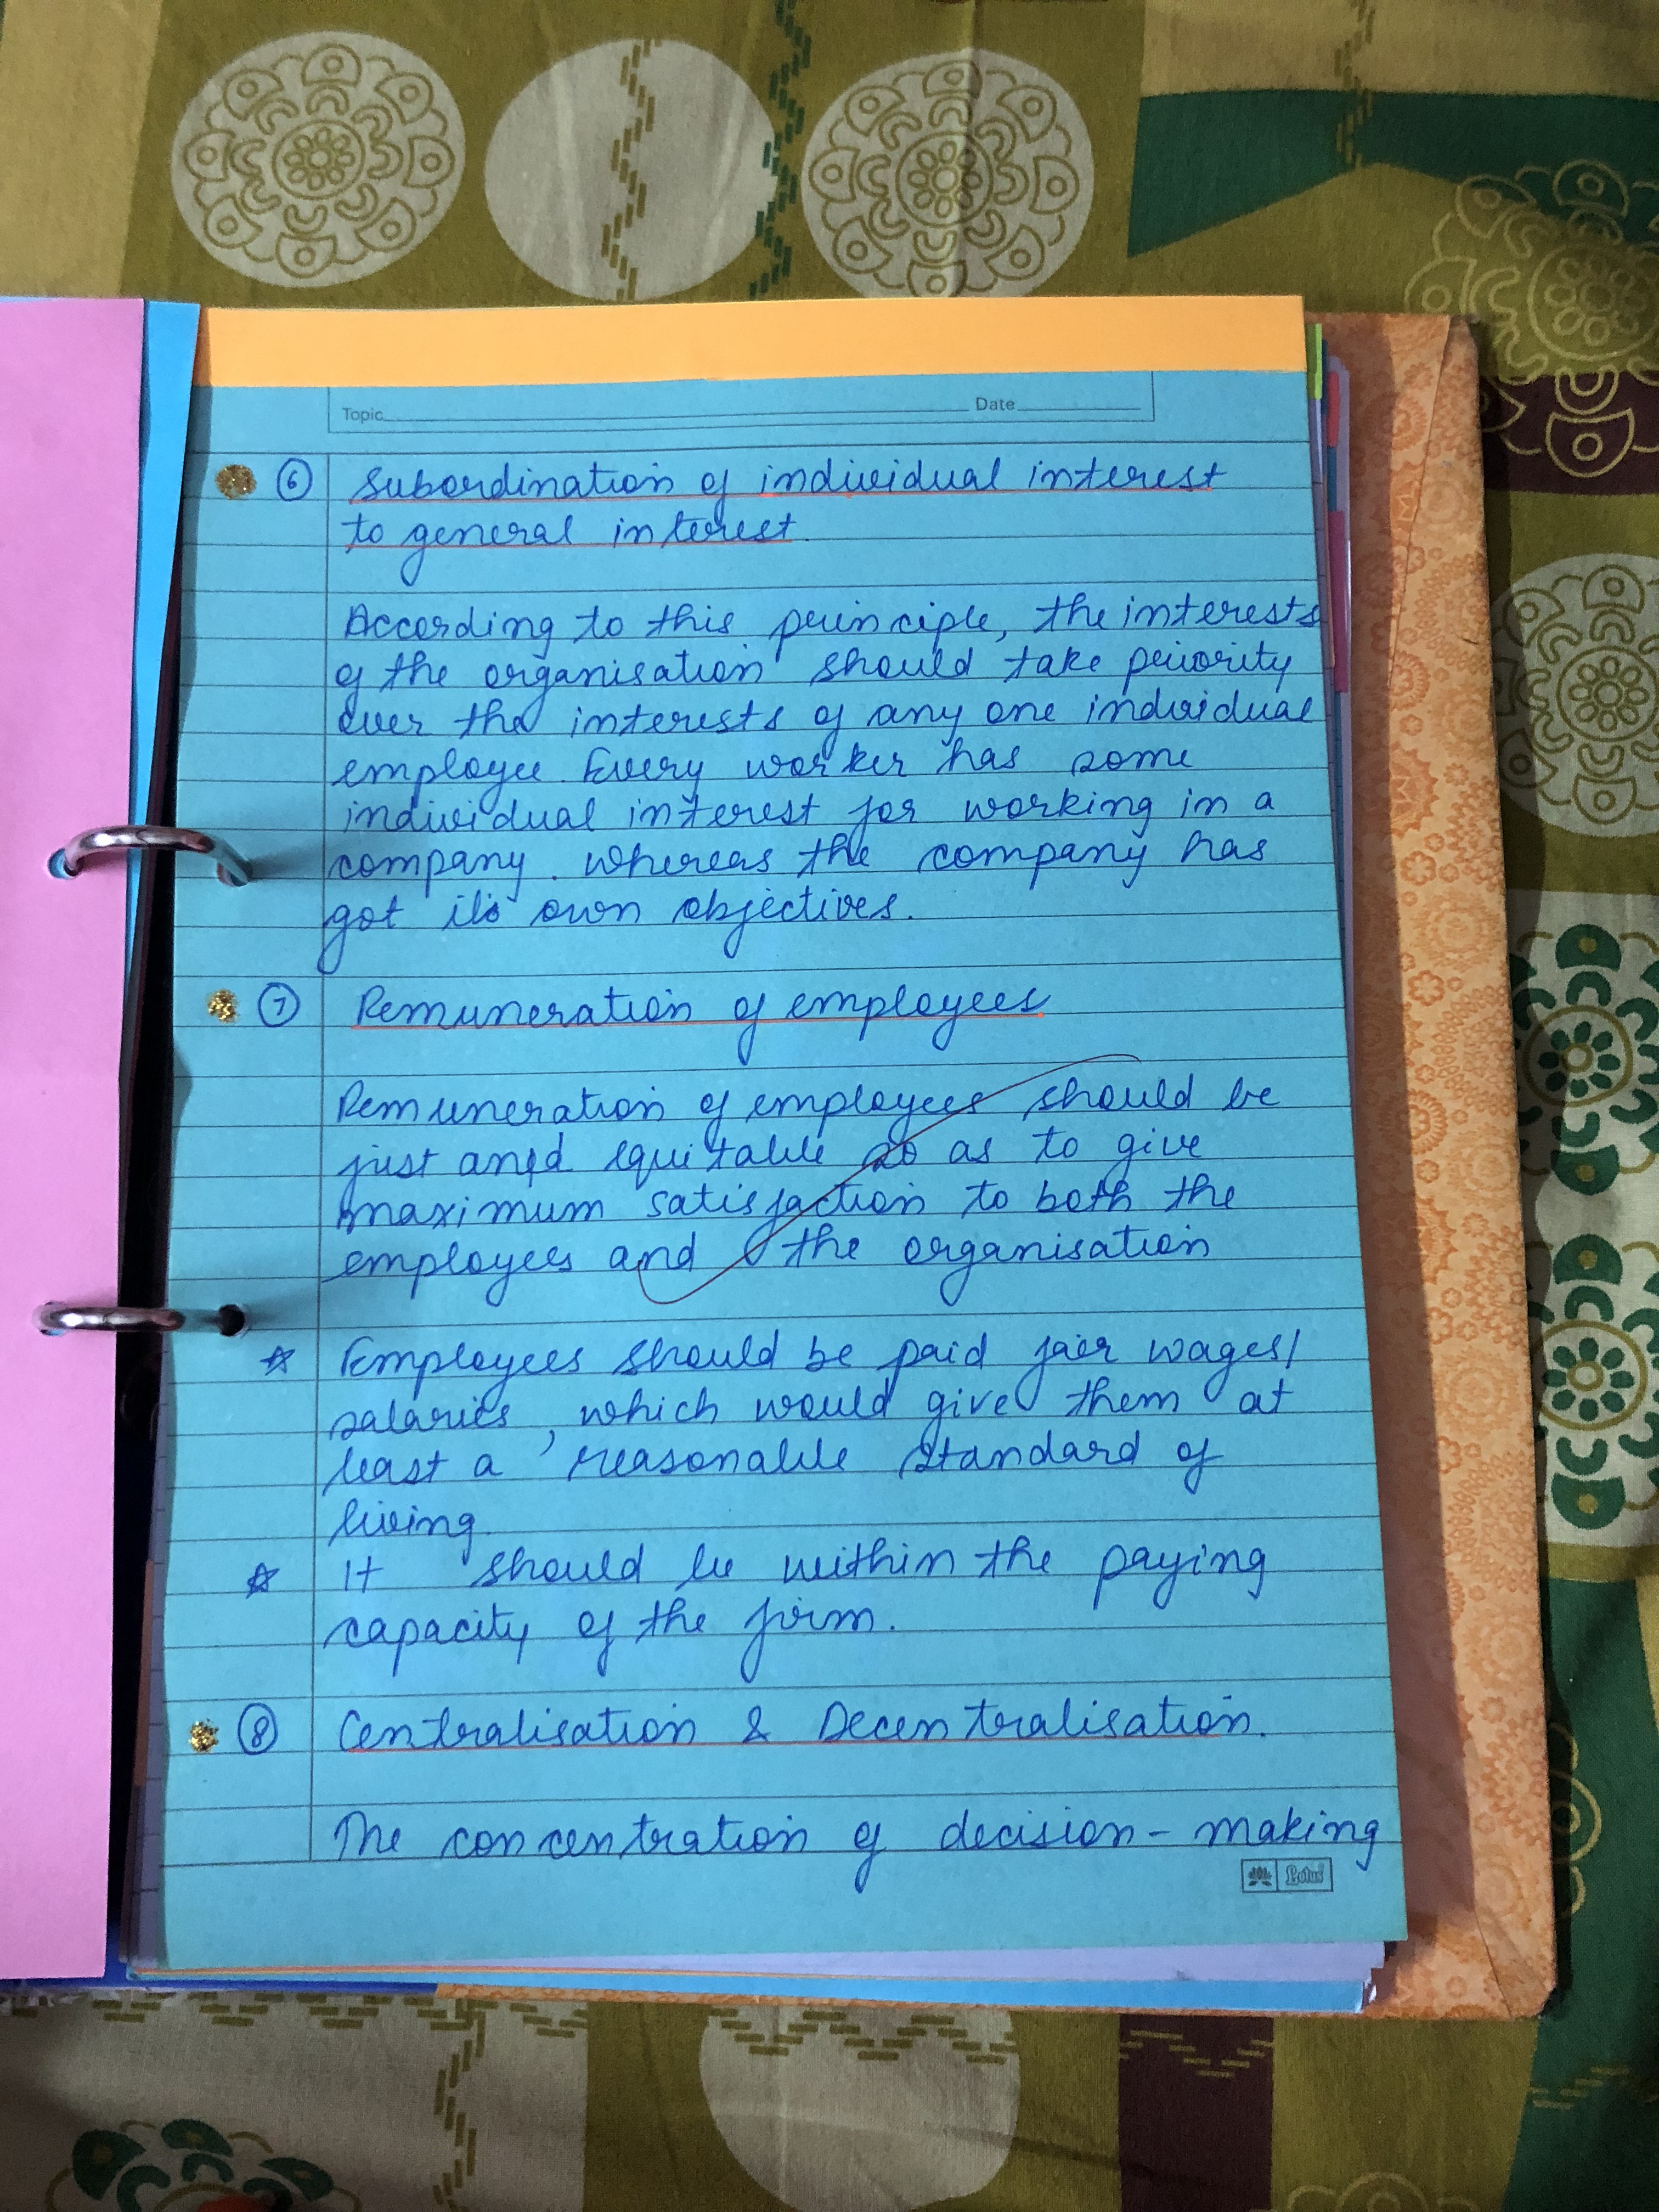 Topic Date
⑥ Subordination of individual interest
to general interest.
According to this principle, the interests
of the organisation should take priority
over the interests of any one individual
employee. Every worker has some
individual interest for working in a
company. whereas the company has
got its own objectives.
⑦ Remuneration of employees
Remuneration of employees should be
just and equitable so as to give
maximum satisfaction to both the
employees and the organisation
☆ Employees should be paid fair wages/
salaries, which would give them at
least a reasonable standard of
living.
☆ It should be within the paying
capacity of the firm.
⑧ Centralisation & Decentralisation.
The concentration of decision-making
Lotus